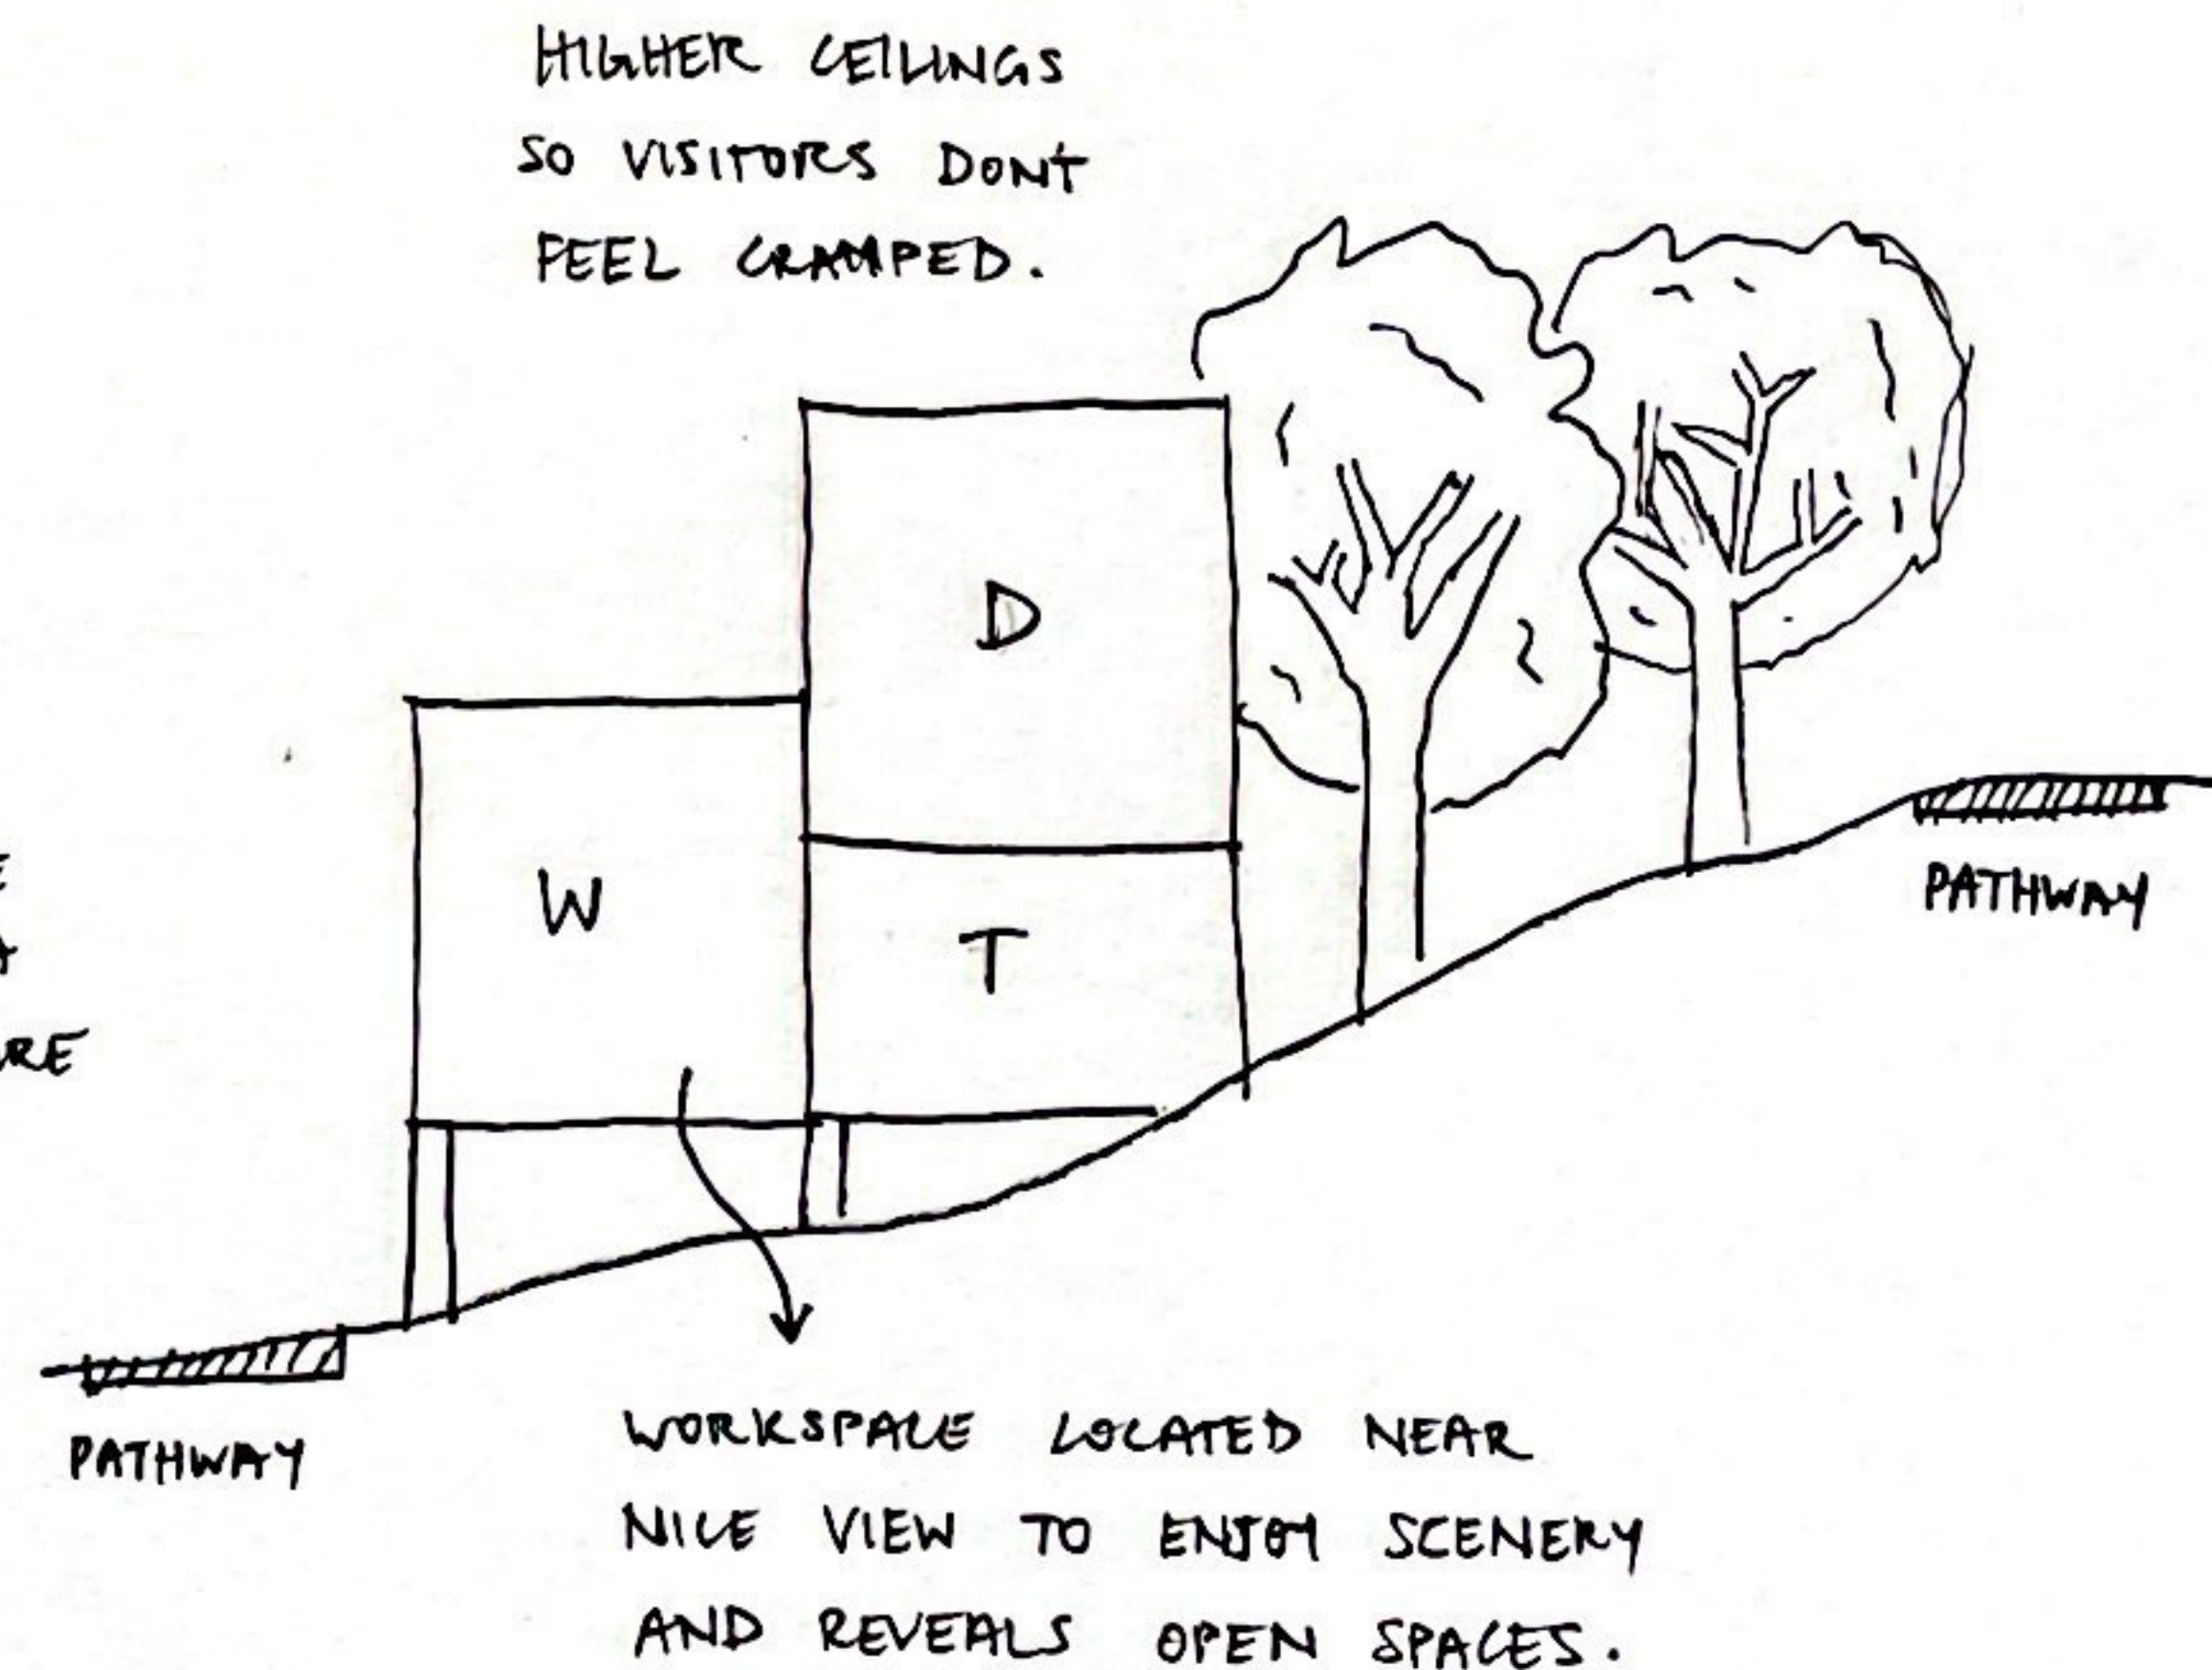 HIGHER CEILINGS
SO VISITORS DONT
FEEL CRAMPED.
D
W
T
RE
PATHWAY
PATHWAY
WORKSPACE LOCATED NEAR
NICE VIEW TO ENJOY SCENERY
AND REVEALS OPEN SPACES.